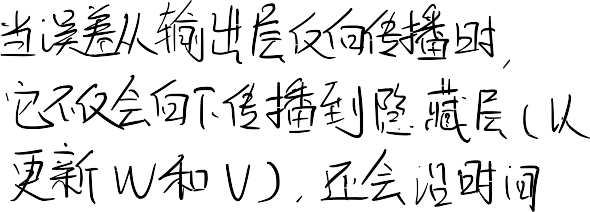 当误差从输出层仅向传播时,
它不仅会向下传播到隐藏层(以
更新W和V),还会沿时间